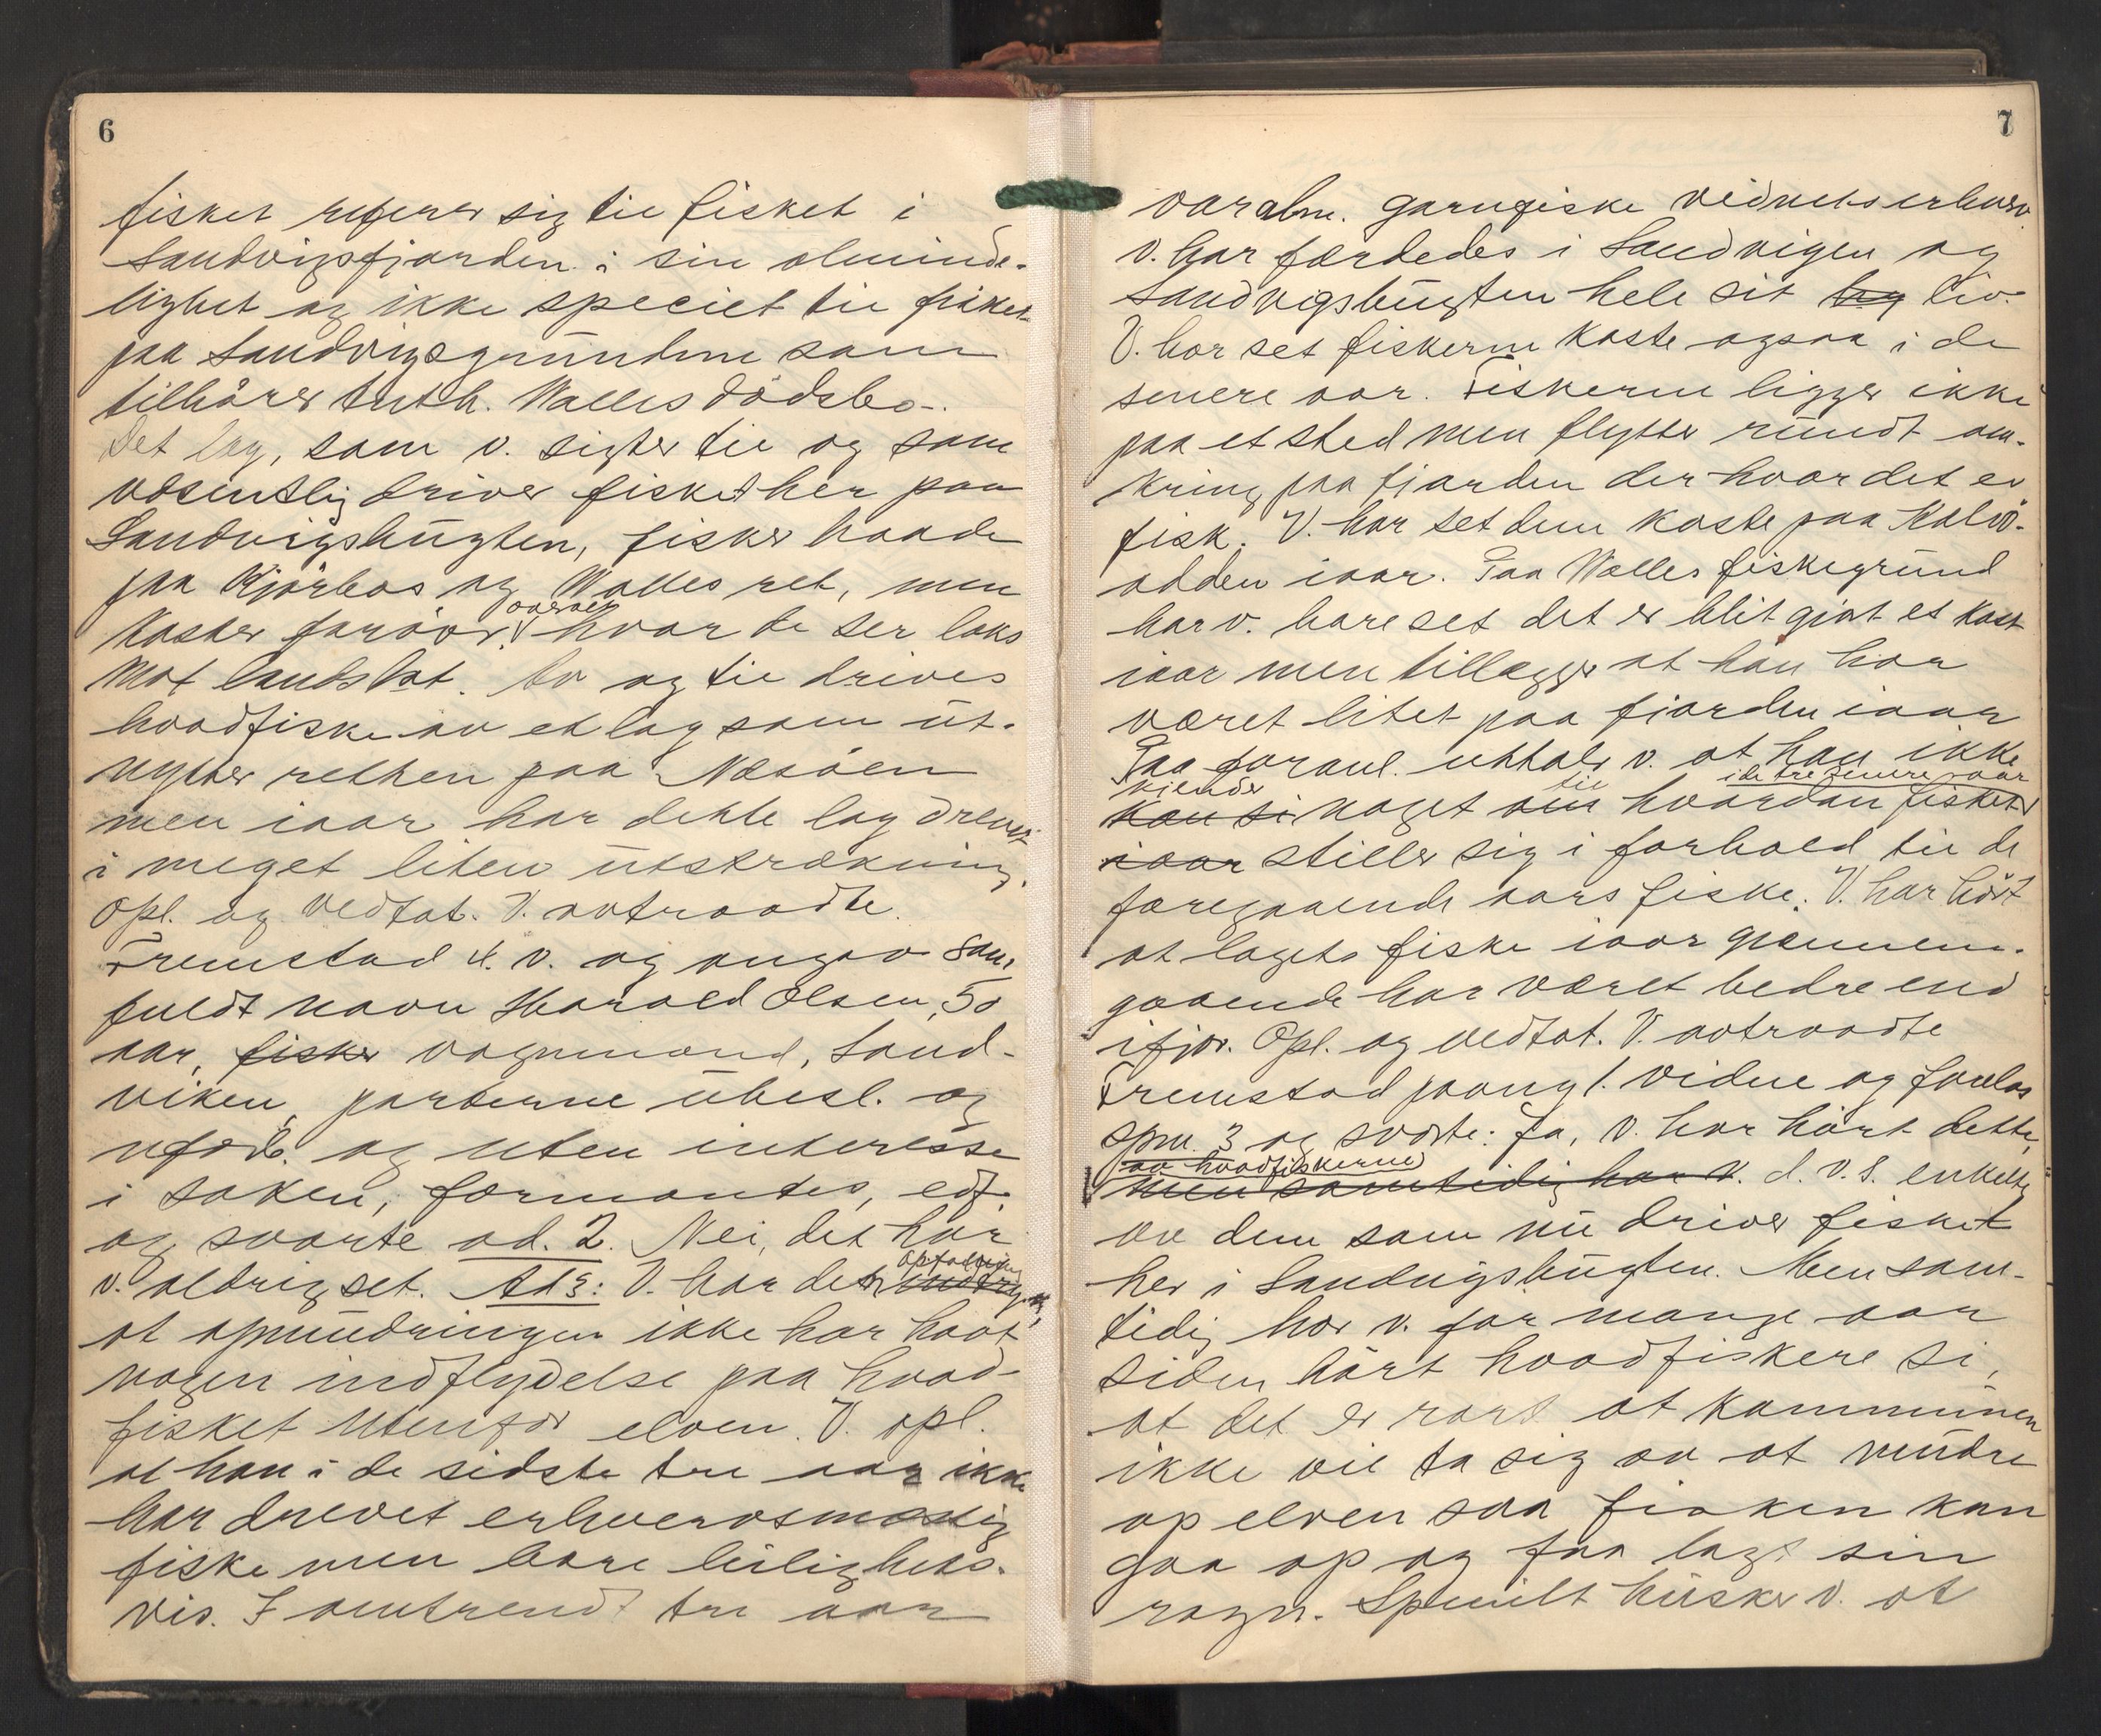 6
fisket referer sig til fisket i
Sandvigsfjorden i sin alminde-
lighet og ikke speciet til fisket
paa Sandvigsgrundene som
tilhører Walles dødsbo.
Det lag, som v. sigter til og som
væsentlig driver fisket her paa
Sandvigsbugten, fisker baade
paa Kjørbos og Walles ret, men
kaster forøvr. overalt hvor de ser laks
mot landslot. Av og til drives
hvadfiske av et lag som ut-
nytter retten paa Nesøen
men iaar har dette lag drevet
i meget liten utstrækning.
Opl. og vedtat. V. avtraadte.
Fremstod 4. v. og angav som
fuldt navn Harald Olsen, 50
aar, fisker vognmand, Sand-
viken, parterne ubesl. og
og uten interesse
i saken, formantes, edf.
og svarte ad. 2. Nei, det har
v. aldrig set. Ad 3: V. har den opfatning indtryk,
at opmudringen ikke har havt
nogen indflydelse paa hvad-
fisket utenfor elven. V. opl.
at han i de sidste tre aar ikke
har drevet erhvervsmæssig
fiske men bare leiligheds-
vis. I omtrendt tre aar
7
var alm. garnfiske vidnets erhverv
V. har færdedes i Sandvigen og
Sandvigsbugten hele sit liv.
V. har set fiskerne kaste ogsaa i de
senere aar. Fiskerne ligger ikke
paa et sted men flytter rundt om-
kring paa fjorden der hvor det er
fisk. V. har set dem kaste paa Kalvø-
odden iaar. Paa Walles fiskegrund
har v. bare set det er blit gjort et kast
iaar men tillægger at han har
været litet paa fjorden iaar
Paa foranl. uttaler v. at han ikke
kjender til i de tre senere aar
kan si noget om hvordan fisket
iaar stiller sig i forhold til de
foregaaende aars fiske. V. har hørt
at lagets fiske iaar gjennem-
gaaende har været bedre end
ifjor. Opl. og vedtat. V. avtraadte
Fremstod paany 1. vidne og forelas
spm. 3 og svarte: Ja, v. har hørt dette,
av hvadfiskerne
men samtidig har v. d.v.s. enkelte
av dem som nu driver fisket
her i Sandvigsbugten. Men sam-
tidig har v. for mange aar
siden hørt hvadfiskere si,
at det er rart at kommunen
ikke vil ta sig av at mudre
op elven saa fisken kan
gaa op og faa lagt sin
rogn. Specielt husker v. at